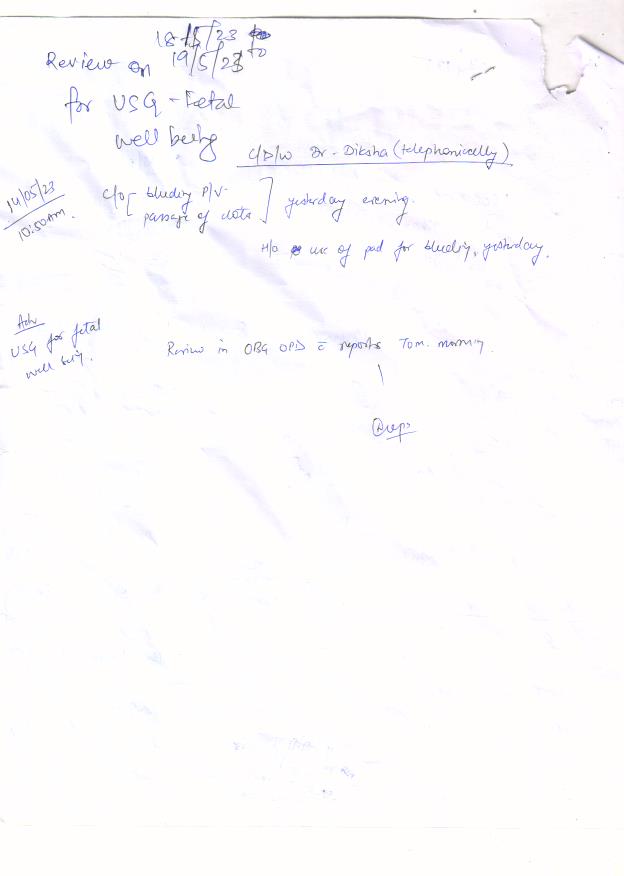 18/5/23 to
Review on 19/5/23
for USG - Fetal
well being
C/D/W Dr - Diksha (telephonically)
14/05/23
10:50 AM.
C/O bleeding P/V - yesterday evening.
passage of clots
H/o use of pad for bleeding, yesterday.
Adv
USG for fetal
well being.
Review in OBG OPD c̄ reports Tom. morning.